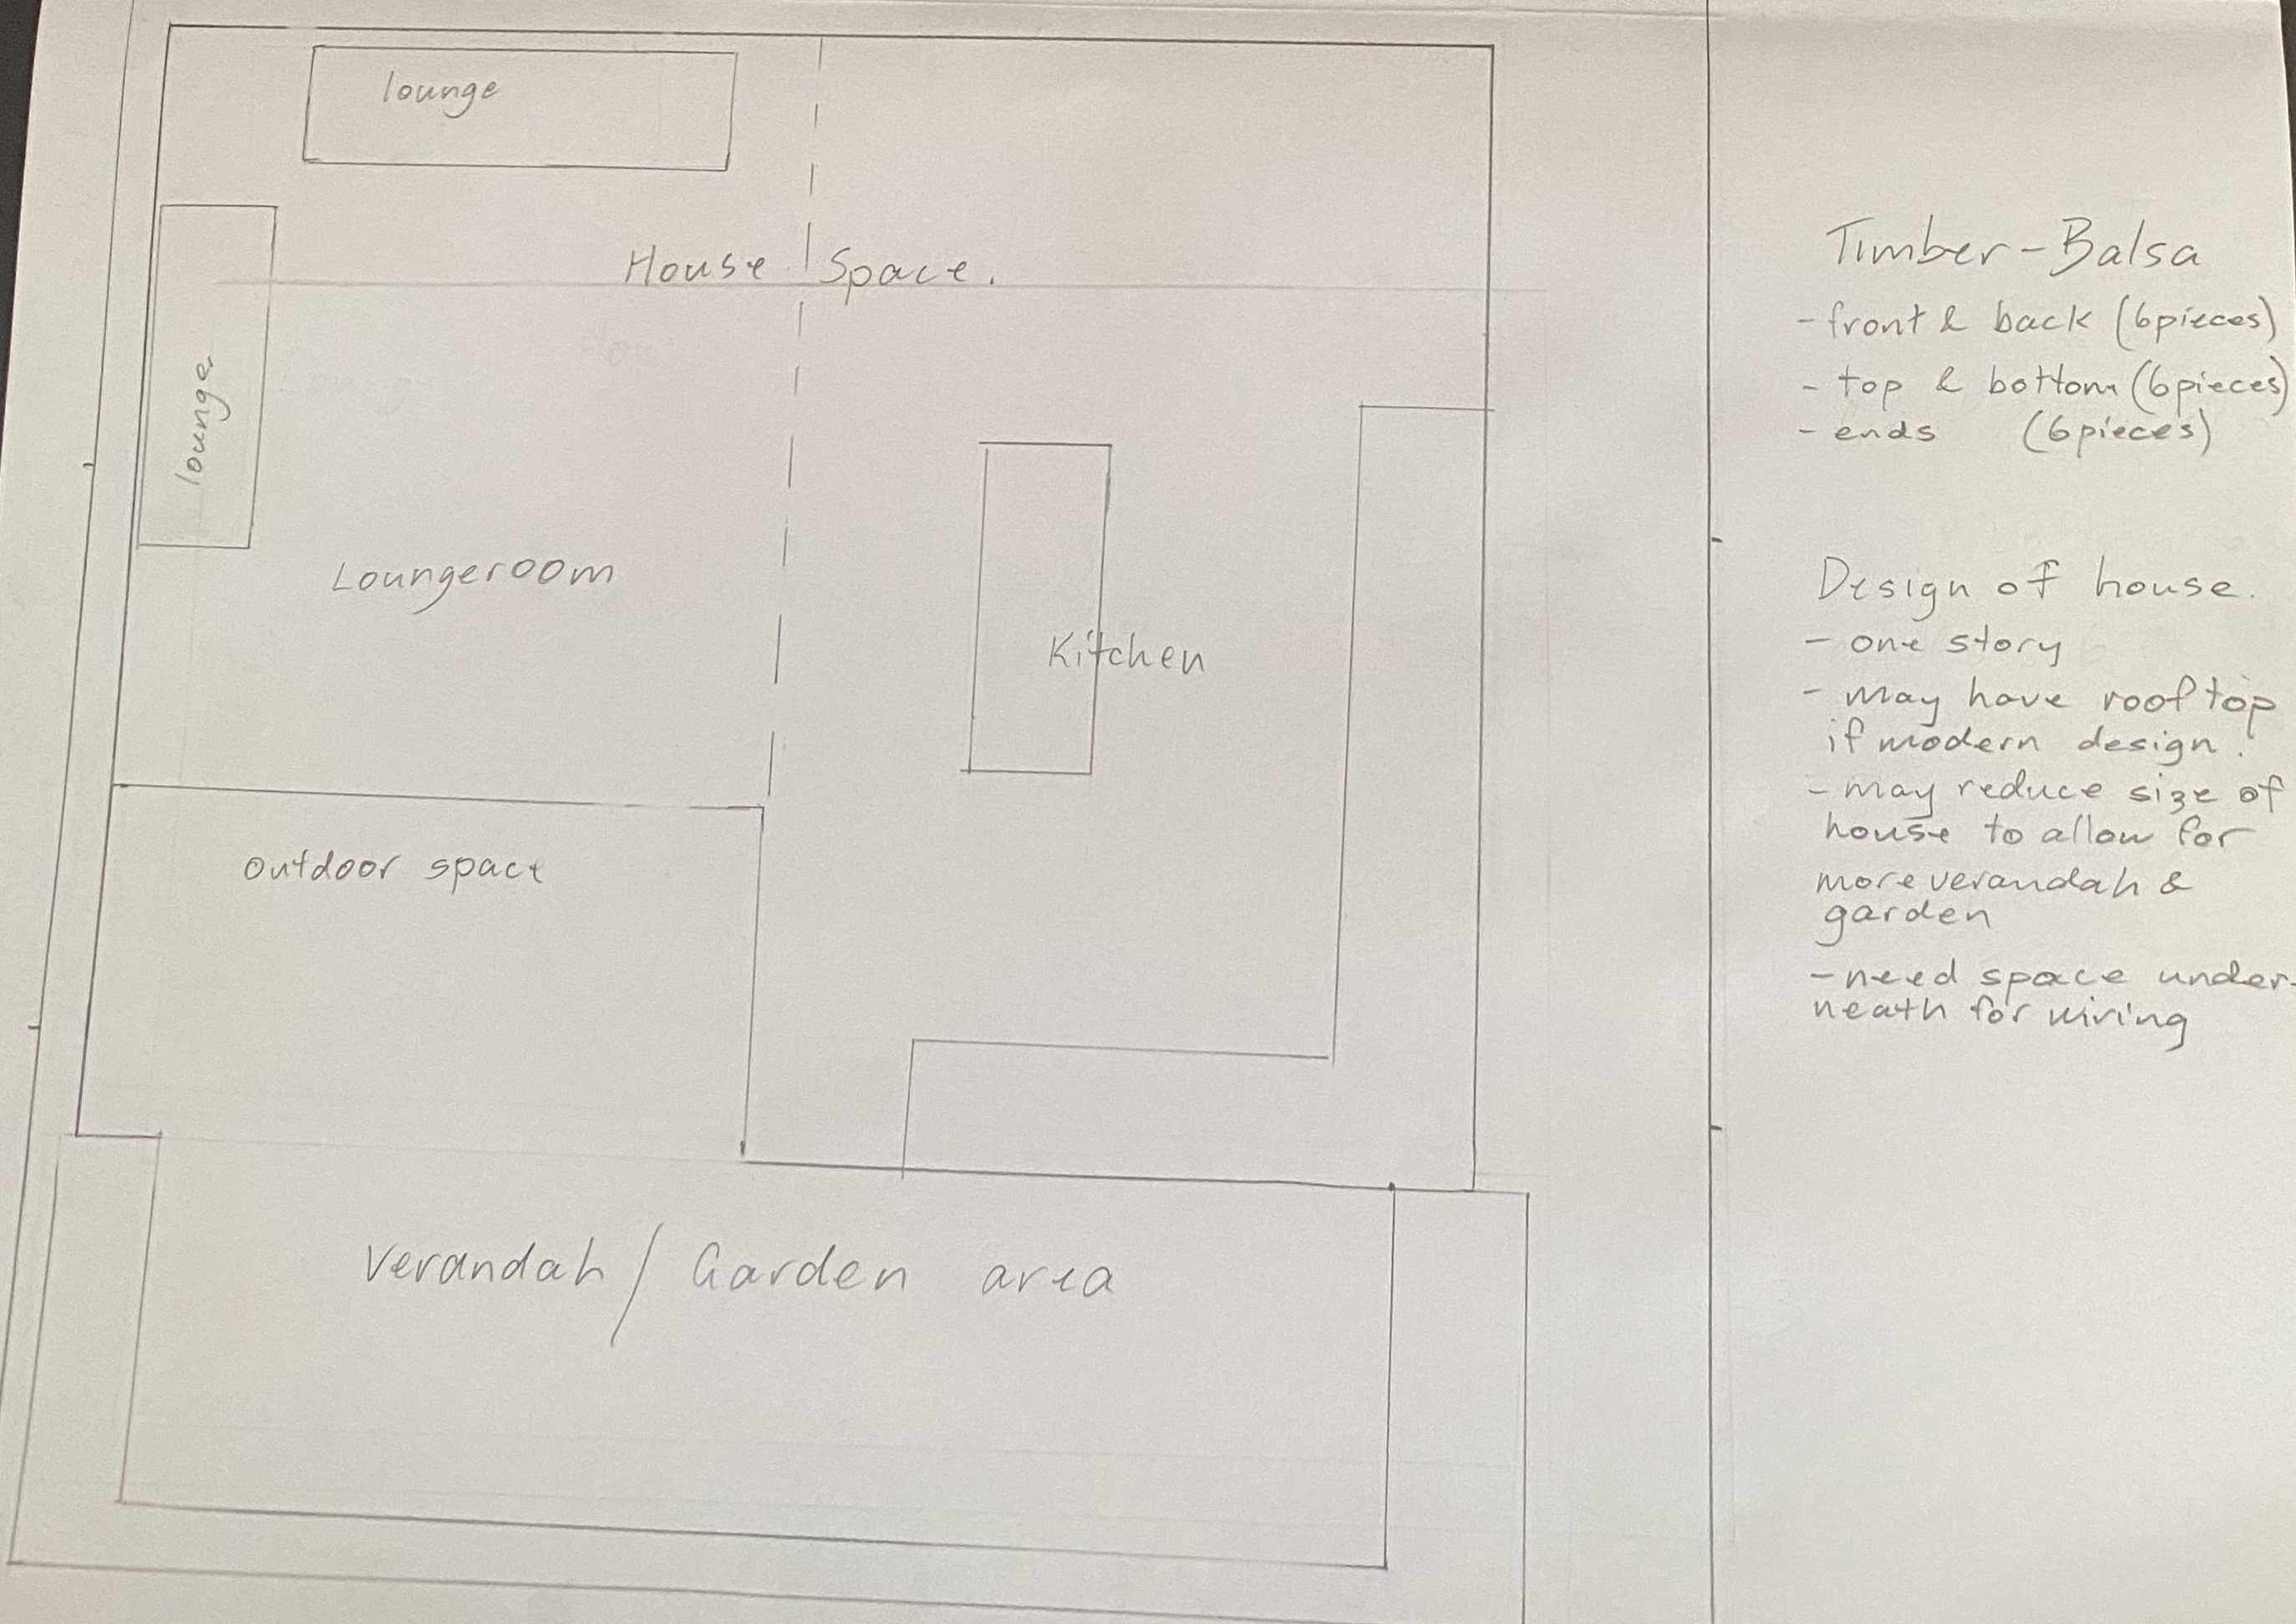 lounge
House Space.
lounge
Loungeroom
Kitchen
outdoor space
Verandah / Garden area
Timber - Balsa
- front & back (6 pieces)
- top & bottom (6 pieces)
- ends (6 pieces)
Design of house.
- one story
- may have rooftop
if modern design.
- may reduce size of
house to allow for
more verandah &
garden
- need space under-
neath for wiring